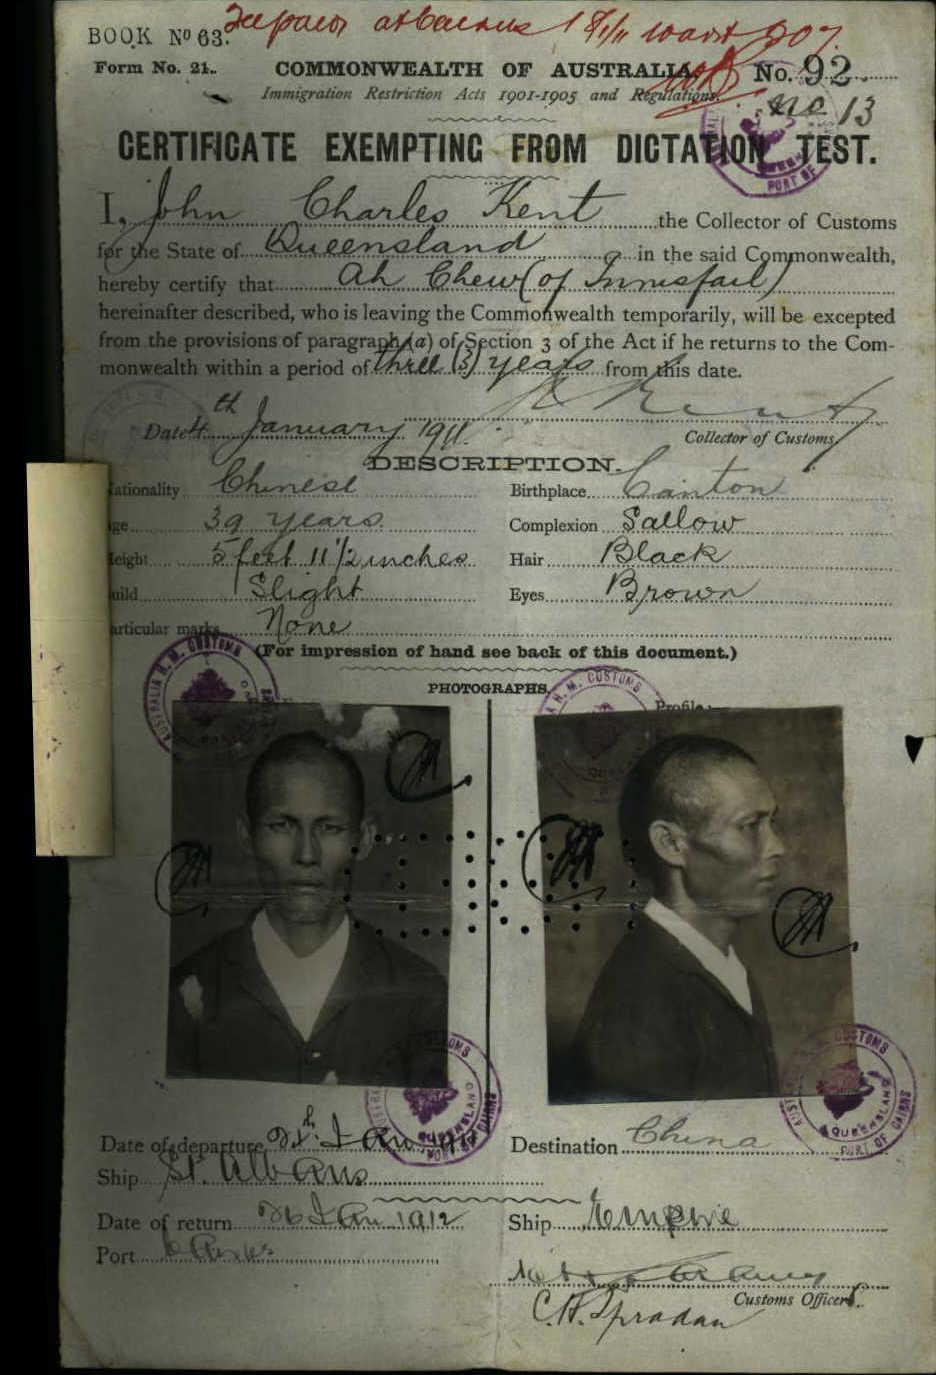 BOOK No 63.
Form No. 21. COMMONWEALTH OF AUSTRALIA. No. 92
Immigration Restriction Acts 1901-1905 and Regulations. No 13
CERTIFICATE EXEMPTING FROM DICTATION TEST.
I, John Charles Kent the Collector of Customs
for the State of Queensland in the said Commonwealth,
hereby certify that Ah Chew (of Innisfail)
hereinafter described, who is leaving the Commonwealth temporarily, will be excepted
from the provisions of paragraph (a) of Section 3 of the Act if he returns to the Com-
monwealth within a period of three (3) years from this date.
Date 4th January 1911. Kent
Collector of Customs
DESCRIPTION.
Nationality Chinese Birthplace Canton
Age 39 years Complexion Sallow
Height 5 feet 11 1/2 inches Hair Black
Build Slight Eyes Brown
Particular marks None
(For impression of hand see back of this document.)
PHOTOGRAPHS.
Profile:—
H. M. CUSTOMS
H. M. CUSTOMS
CUSTOMS QUEENSLAND PORT OF CAIRNS
CUSTOMS QUEENSLAND PORT OF CAIRNS
Date of departure Jan Destination China
Ship St. Albans
Date of return 26 Jan 1912 Ship Empire
Port Cairns
Customs Officer.